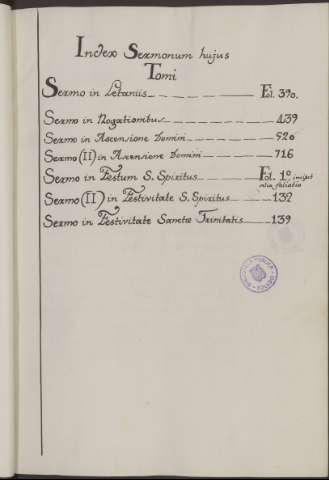 Index Sermonum hujus
Tomi
Sermo in Letaniis Fol. 390.
Sermo in Rogationibus 439
Sermo in Ascensione Domini 520
Sermo (II) in Ascensione Domini 716
Sermo in Festum S. Spiritus Fol. 1º incipit
alia foliatio
Sermo (II) in Festivitate S. Spiritus 132
Sermo in Festivitate Sanctæ Trinitatis 139